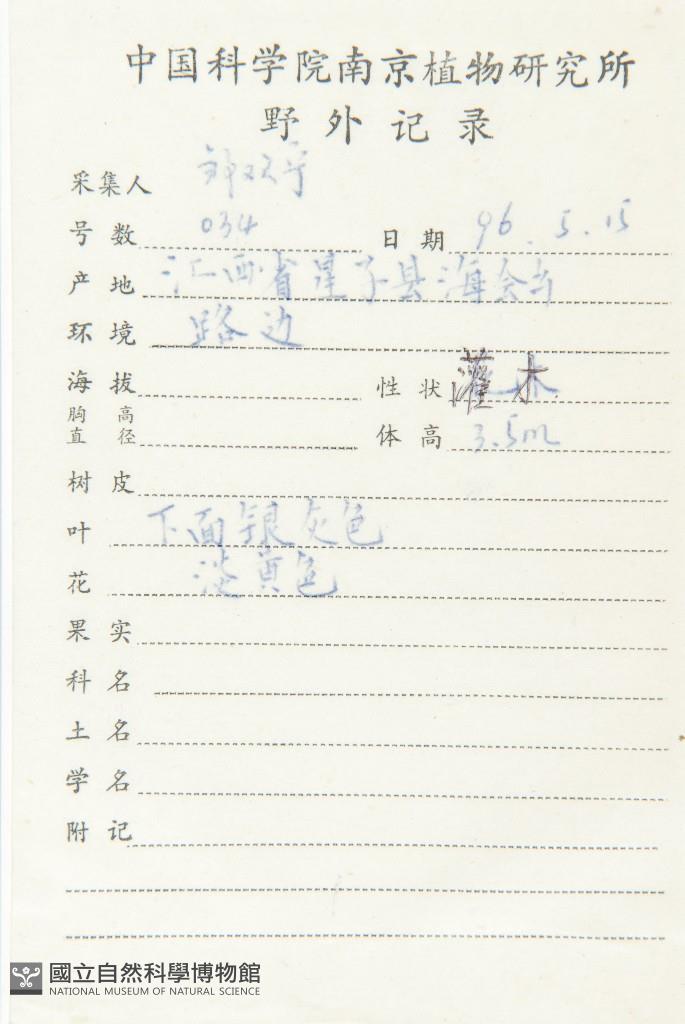 中国科学院南京植物研究所
野外记录
采集人
号数 034 日期 96.5.15
产地 江西省星子县海会乡
环境 路边
海拔 性状 灌木
胸高直径 体高 3.5m
树皮
叶 下面银灰色
花 淡黄色
果实
科名
土名
学名
附记
國立自然科學博物館
NATIONAL MUSEUM OF NATURAL SCIENCE